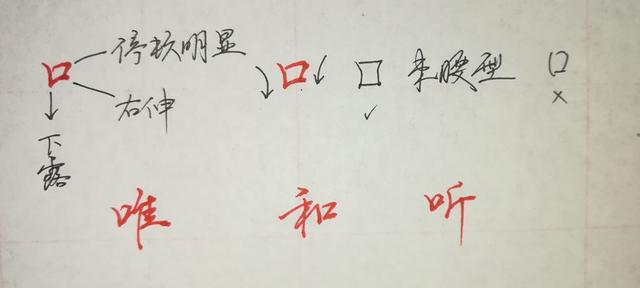 口 停顿明显
右伸
下露
口 束腰型 口
唯 和 听